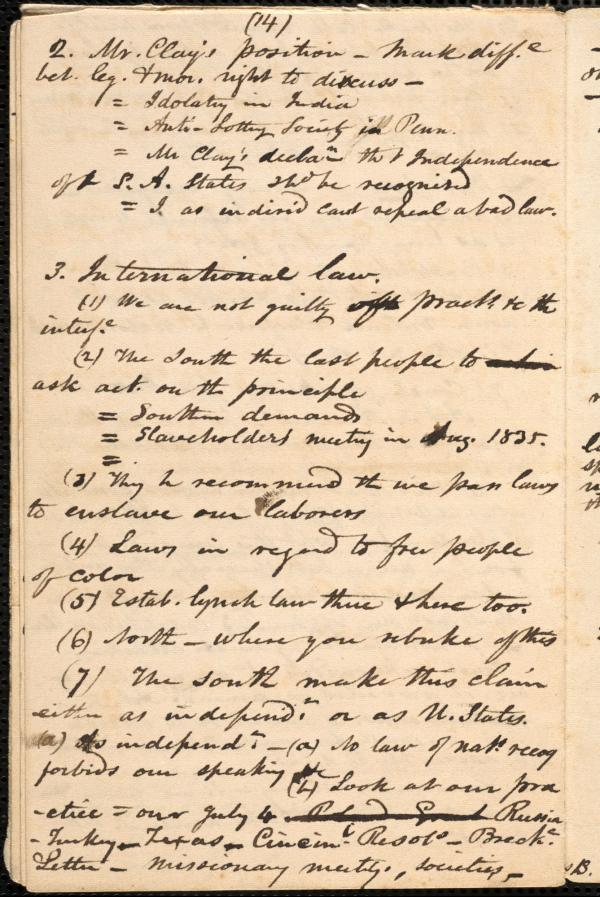 (14)
2. Mr. Clay's position - Mark diff.e
bet. leg. & mor. right to discuss -
= Idolatry in India
= Anti-Lottery Society in Penn.
= Mr Clay's declan tht Independence
of S. A. States shd be recognised
= I. as individ cant repeal a bad law.
3. International law.
(1) We are not guilty pract. & th
interf.e
(2) The South the last people to
ask act. on th principle
= Southn demands
= Slaveholders meeting in Aug. 1835.
=
(3) They h recommend th we pass laws
to enslave our laborers
(4) Laws in regard to free people
of color
(5) Estab. lynch law there & here too.
(6) North - where you rebuke
(7) The South make this claim
either as independ.t or as U. States.
(a) As independ.t - (a) No law of nat.s recog
forbids our speaking
(b) Look at our pra
-ctice = our July 4. Russia
- Turkey - Texas - Cincin.t Resols - Breck.e
Letter - missionary meetgs, societies, -